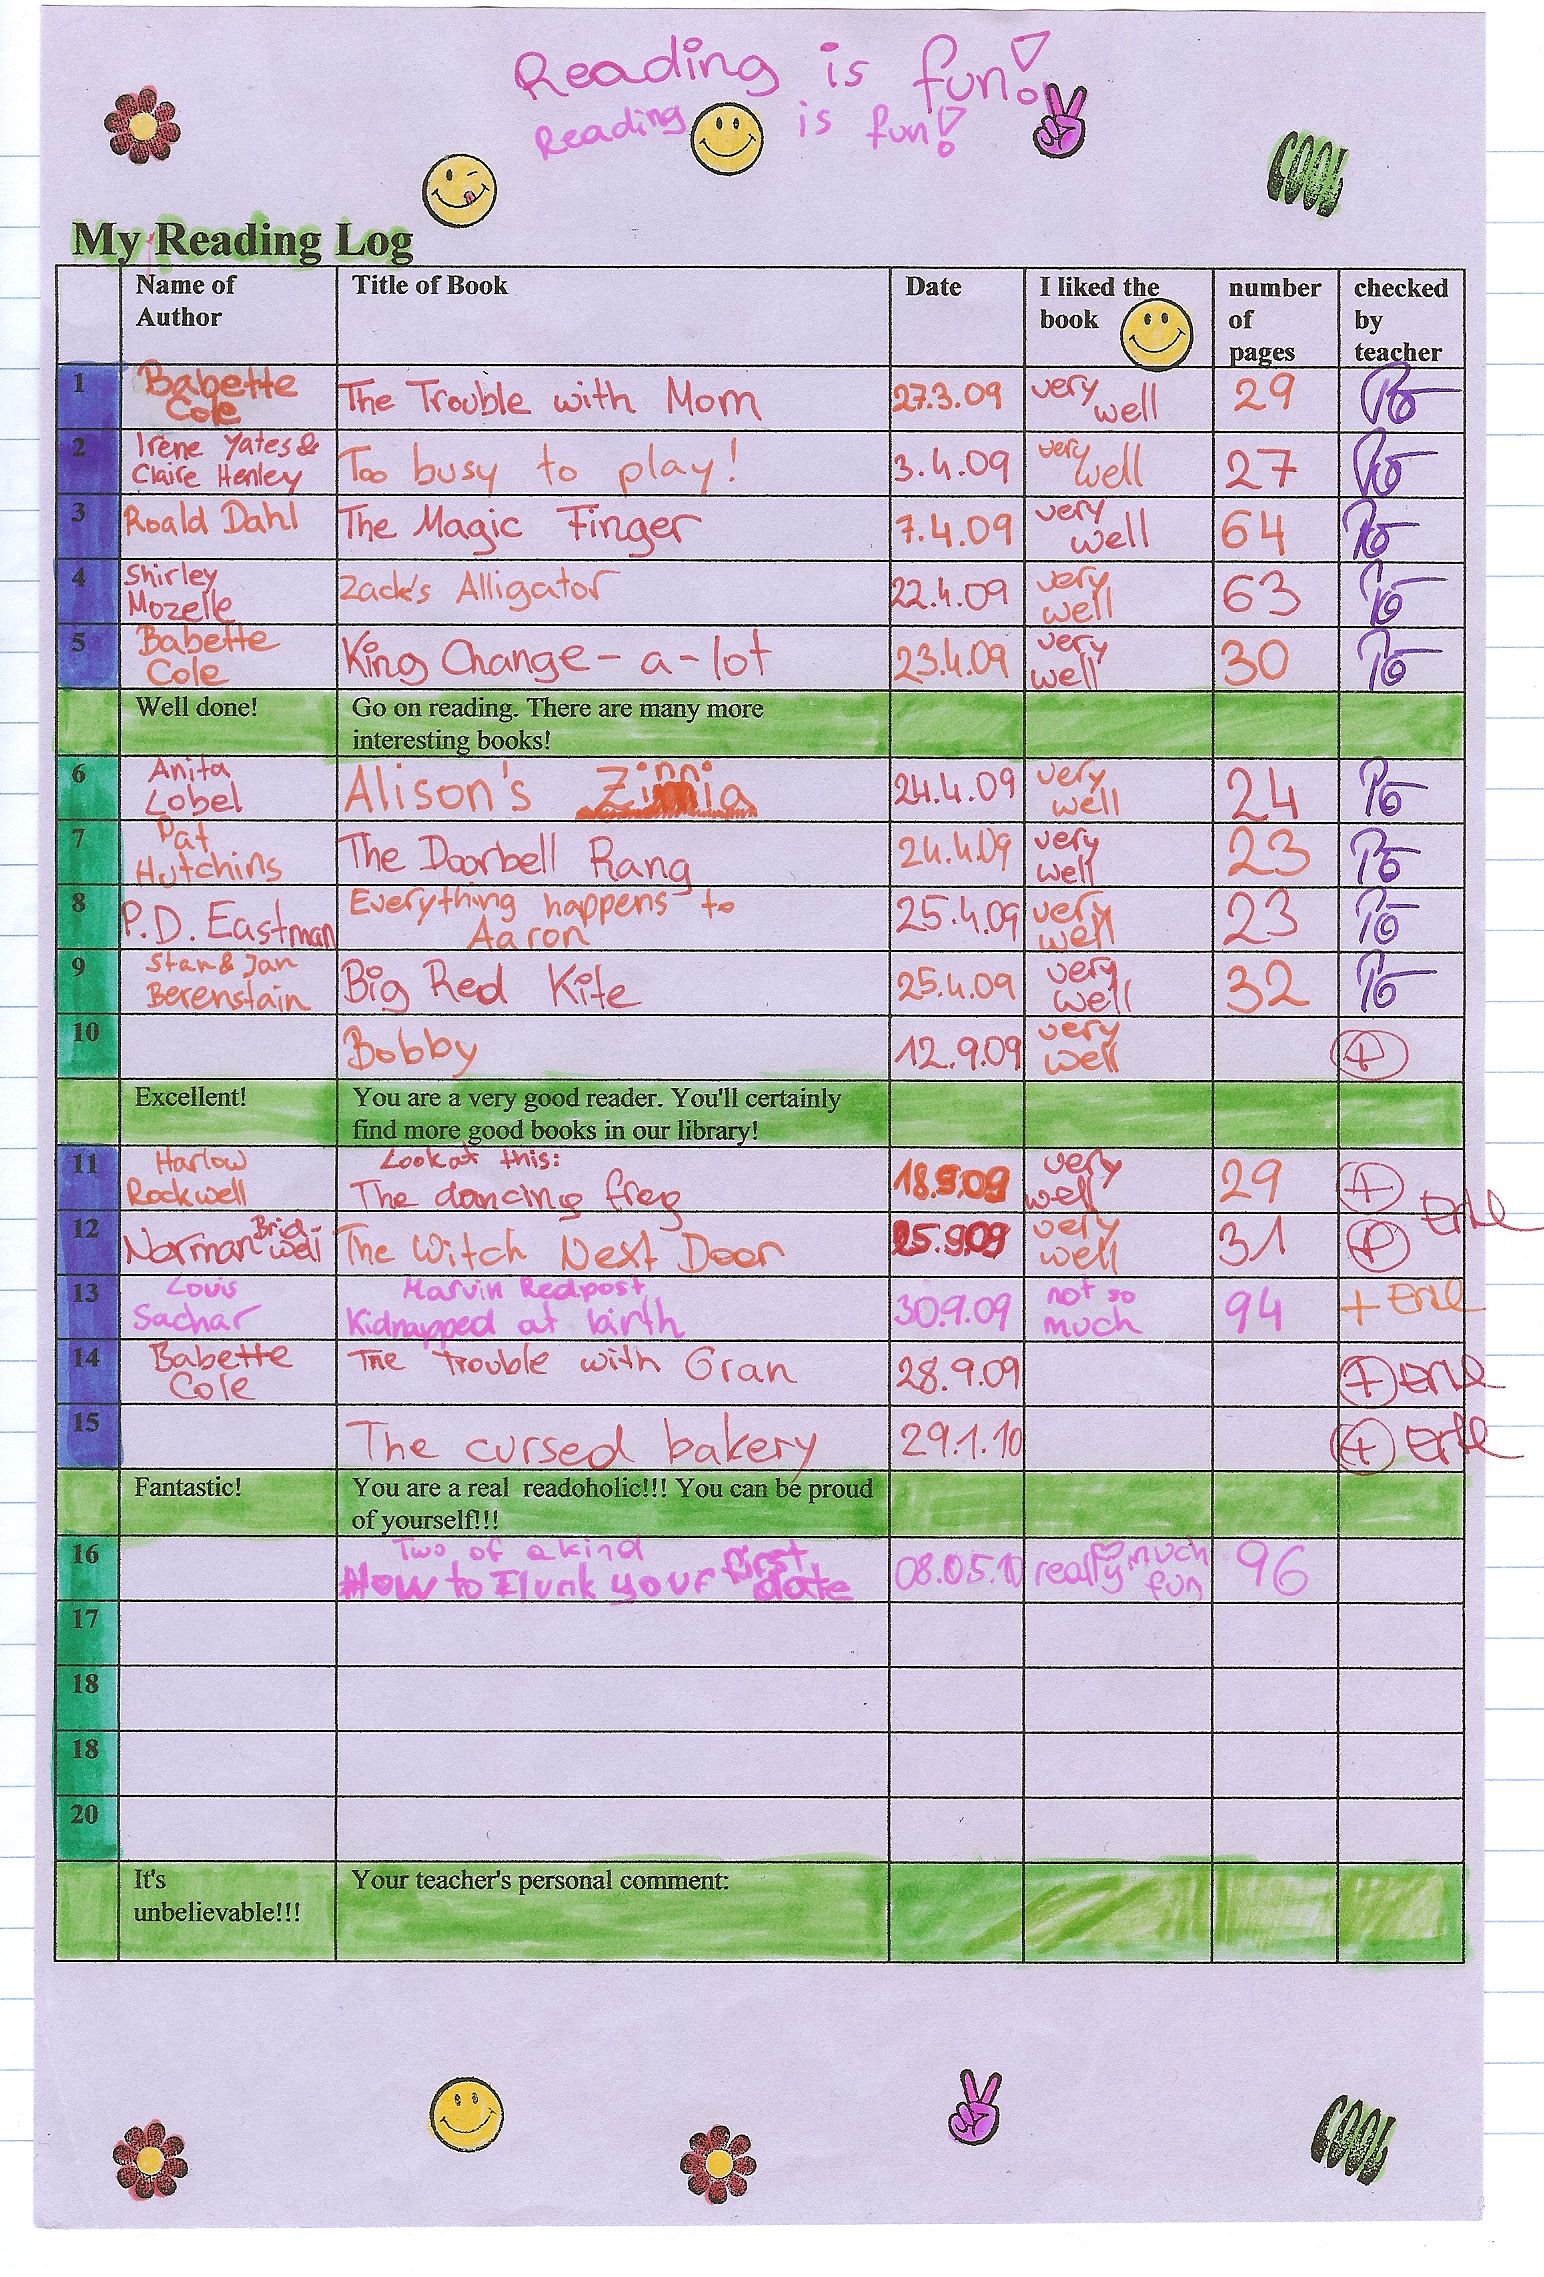 Reading is fun!
Reading is fun!
COOL
My Reading Log
Name of Author Title of Book Date I liked the book number of pages checked by teacher
1 Babette Cole The Trouble with Mom 27.3.09 very well 29
2 Irene Yates & Claire Henley Too busy to play! 3.4.09 very well 27
3 Roald Dahl The Magic Finger 7.4.09 very well 64
4 Shirley Mozelle Zack's Alligator 22.4.09 very well 63
5 Babette Cole King Change-a-lot 23.4.09 very well 30
Well done! Go on reading. There are many more
interesting books!
6 Anita Lobel Alison's Zinnia 24.4.09 very well 24
7 Pat Hutchins The Doorbell Rang 24.4.09 very well 23
8 P.D. Eastman Everything happens to Aaron 25.4.09 very well 23
9 Stan & Jan Berenstain Big Red Kite 25.4.09 very well 32
10 Bobby 12.9.09 very well +
Excellent! You are a very good reader. You'll certainly
find more good books in our library!
11 Harlow Rockwell Look at this: The dancing frog 18.9.09 very well 29 +
12 Norman Bridwell The Witch Next Door 25.9.09 very well 31 +
13 Louis Sachar Marvin Redpost Kidnapped at birth 30.9.09 not so much 94 +
14 Babette Cole The trouble with Gran 28.9.09 +
15 The cursed bakery 29.1.10 +
Fantastic! You are a real readoholic!!! You can be proud
of yourself!!!
16 Two of a kind How to Flunk your first date 08.05.10 really much fun 96
17
18
18
20
It's unbelievable!!! Your teacher's personal comment:
COOL